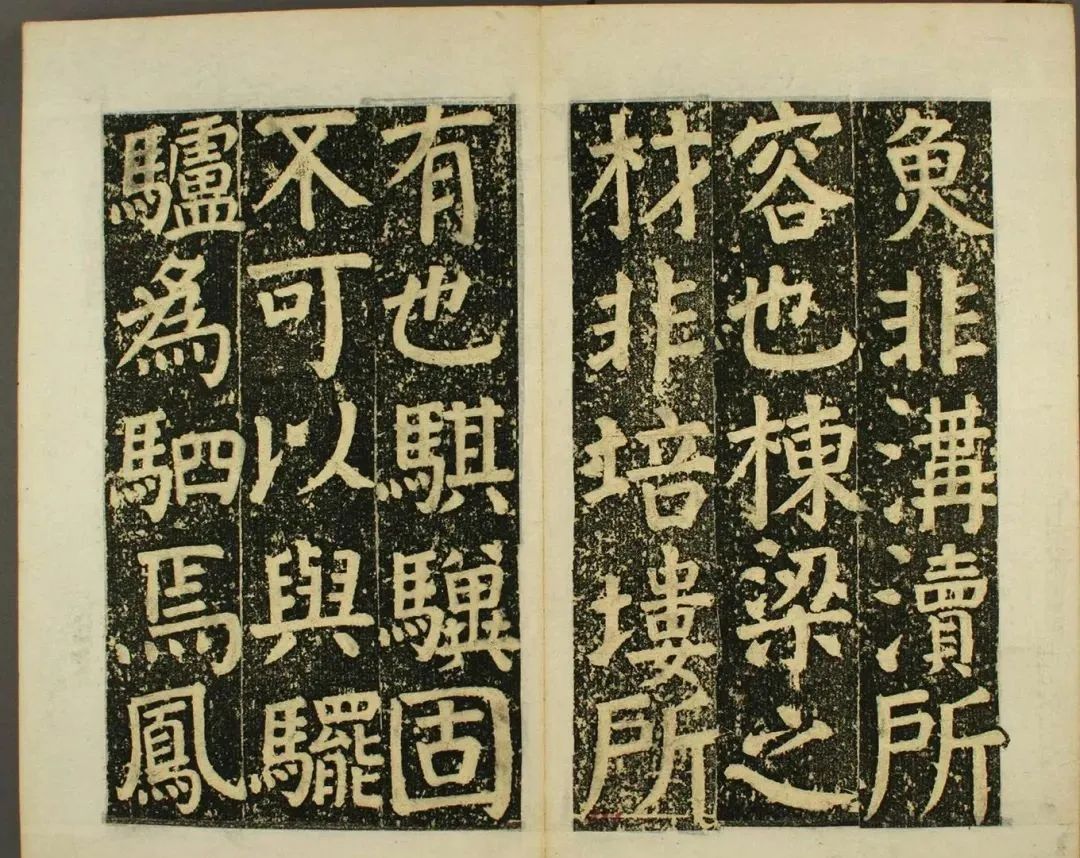 魚非溝瀆所
容也棟梁之
材非培塿所
有也騏驥固
不可以與
驢為駟焉鳳